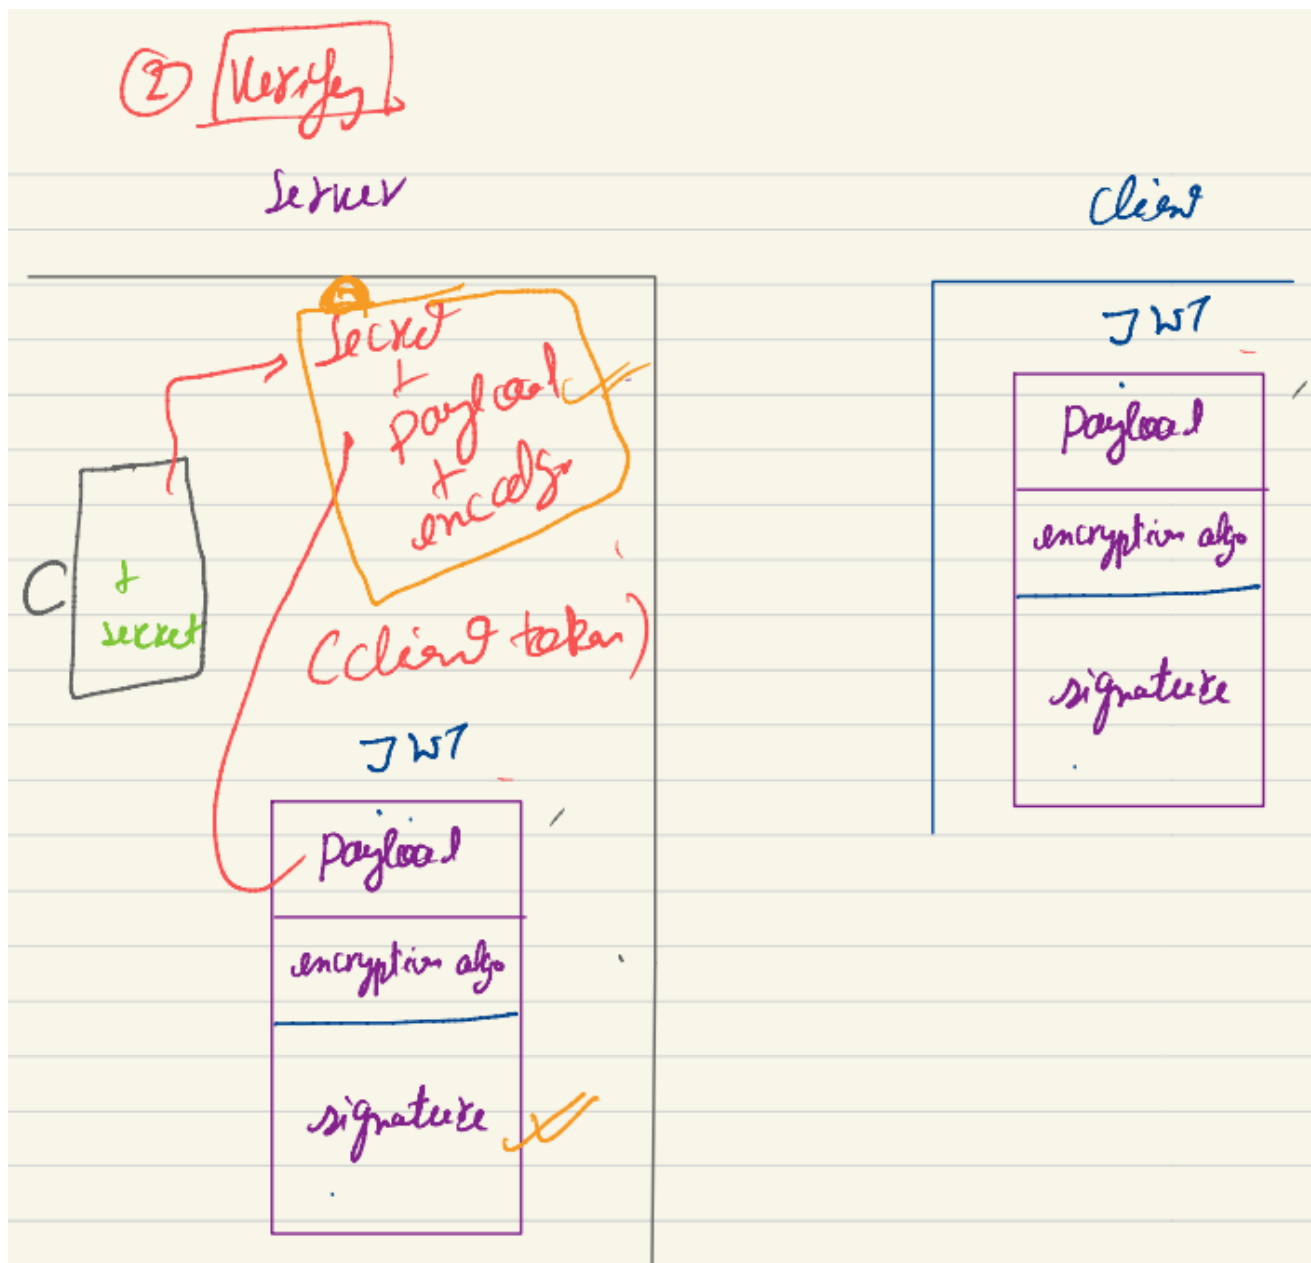 ② Verify
Server
Client
Secret
+
payload
+
enc algo
C
+
secret
(client token)
JWT
payload
encryption algo
signature
JWT
payload
encryption algo
signature